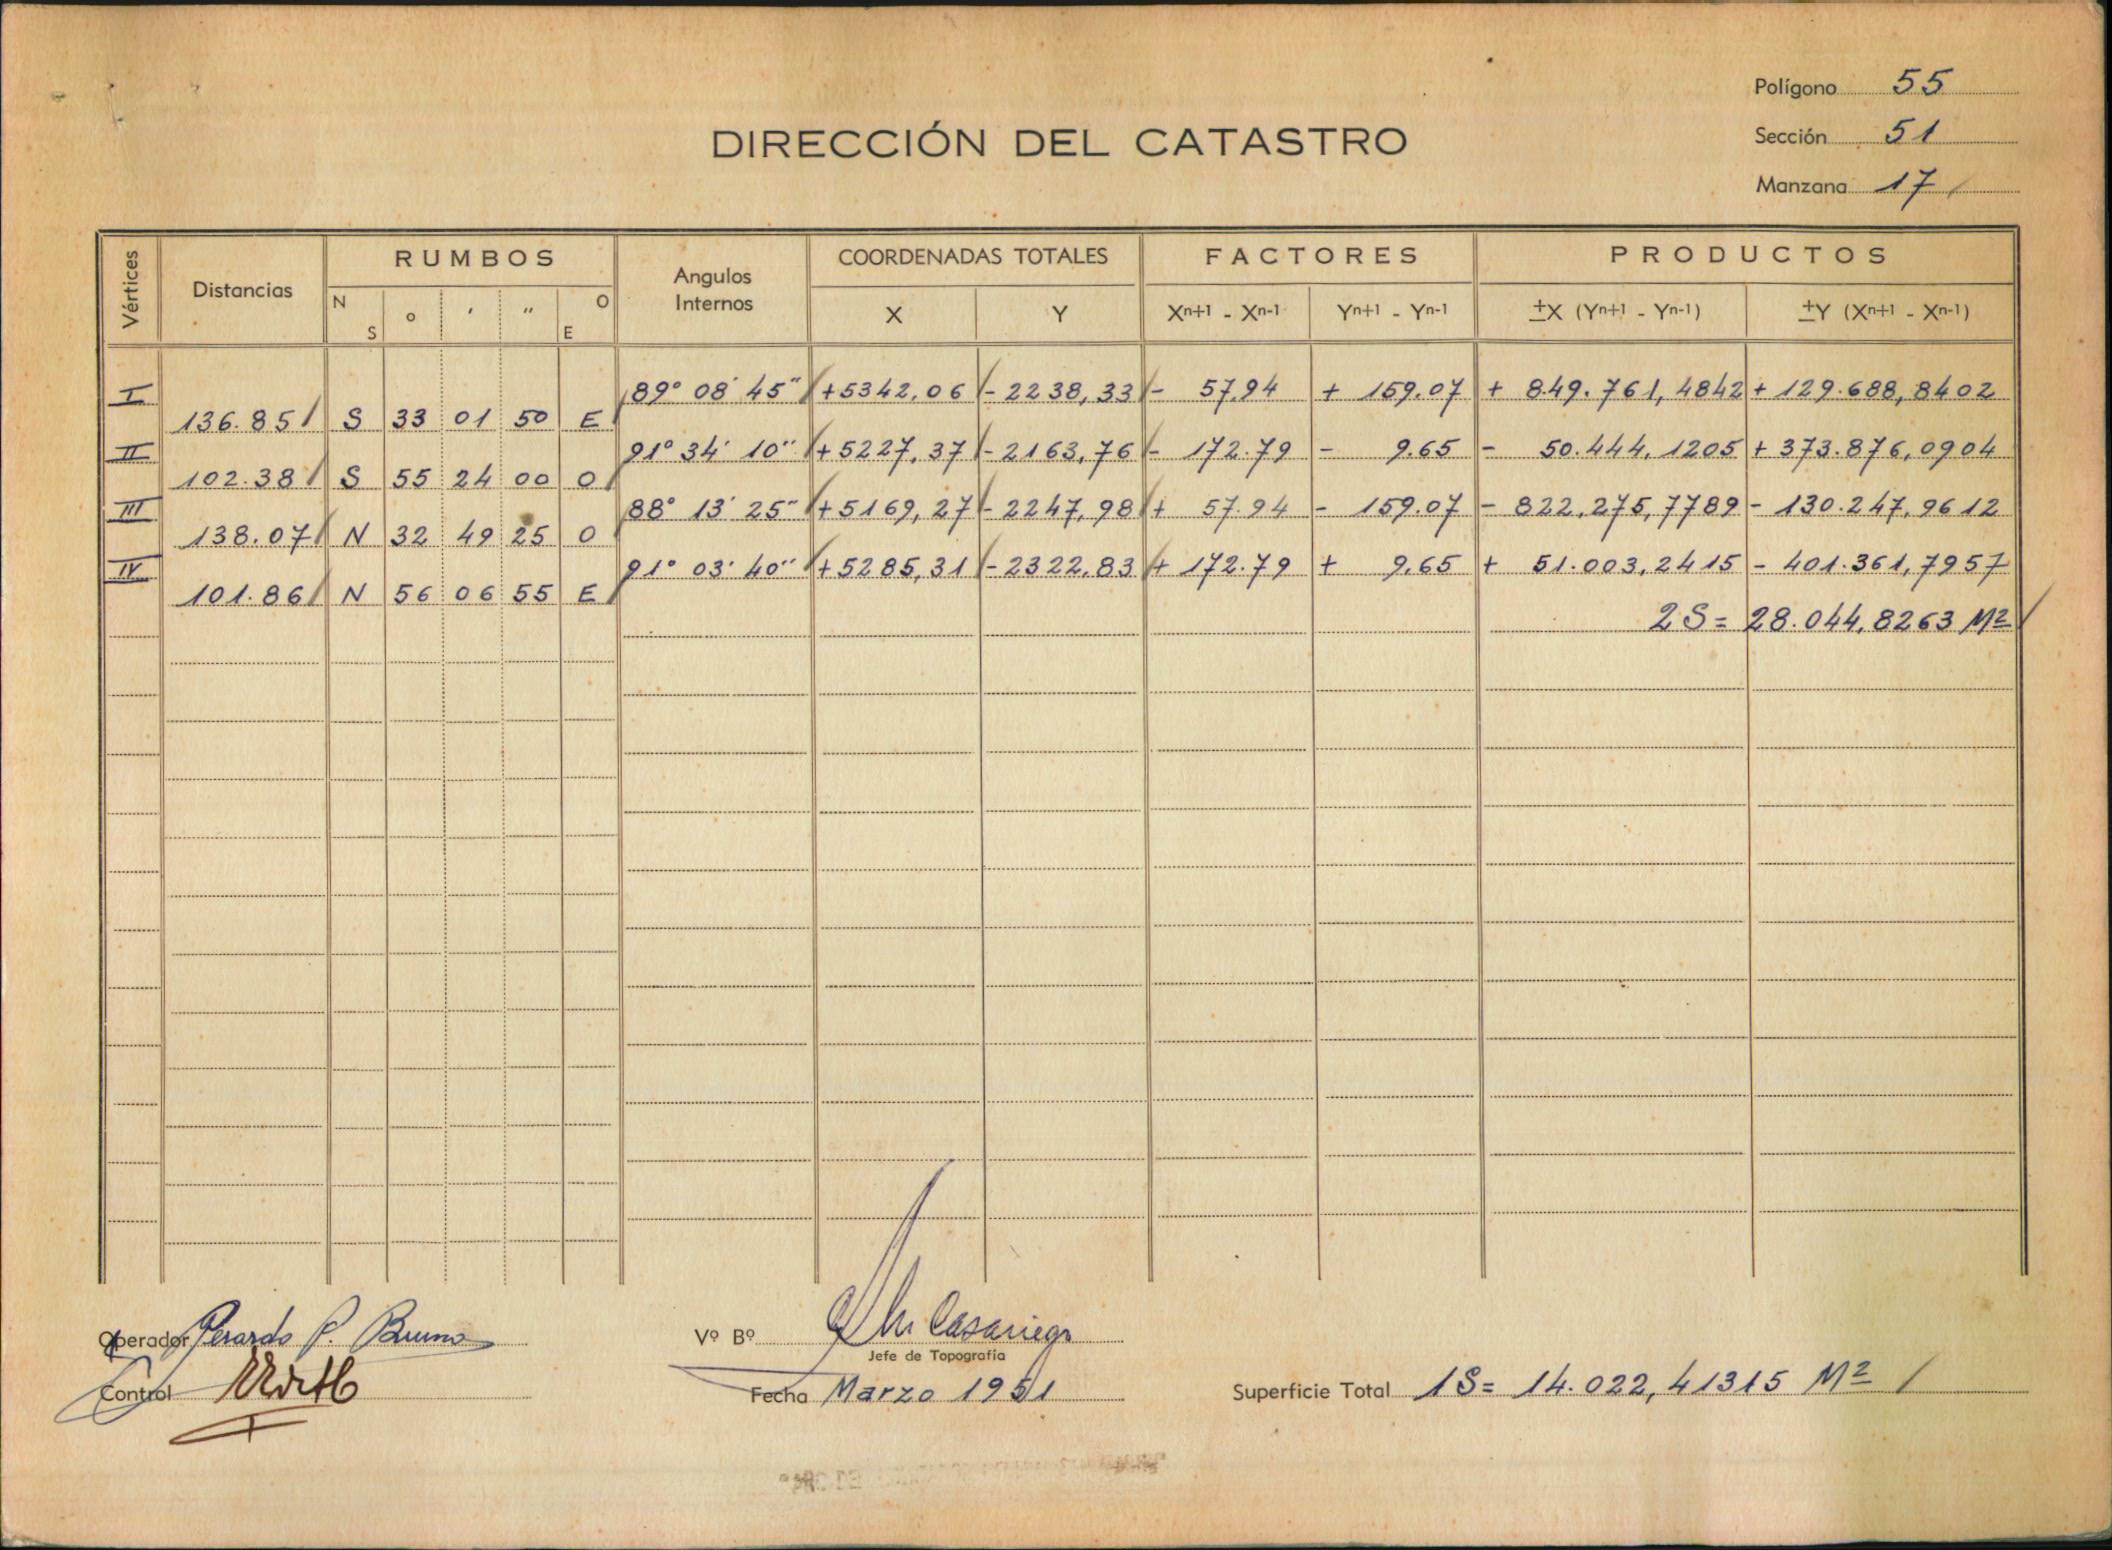 Polígono 55
DIRECCIÓN DEL CATASTRO
Sección 51
Manzana 17
Vértices Distancias RUMBOS Angulos Internos COORDENADAS TOTALES FACTORES PRODUCTOS
N S o ' " O E X Y Xn+1 - Xn-1 Yn+1 - Yn-1 ±X (Yn+1 - Yn-1) ±Y (Xn+1 - Xn-1)
I 89° 08' 45" +5342,06 -2238,33 - 57.94 + 159.07 + 849.761,4842 + 129.688,8402
136.85 S 33 01 50 E
II 91° 34' 10" +5227,37 -2163,76 - 172.79 - 9.65 - 50.444,1205 + 373.876,0904
102.38 S 55 24 00 O
III 88° 13' 25" +5169,27 -2247,98 + 57.94 - 159.07 - 822,275,7789 - 130.247,9612
138.07 N 32 49 25 O
IV 91° 03' 40" +5285,31 -2322,83 + 172.79 + 9.65 + 51.003,2415 - 401.361,7957
101.86 N 56 06 55 E
2S = 28.044,8263 M2
Operador P. Bruno
Vº Bº Casariego
Jefe de Topografía
Control
Fecha Marzo 1951
Superficie Total 1S = 14.022,41315 M2